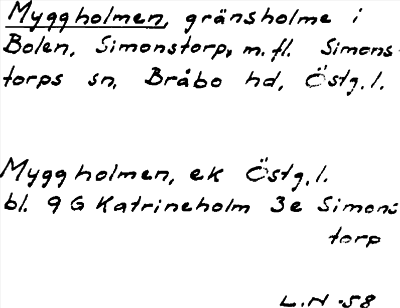 Myggholmen, gränsholme i
Bolen, Simonstorp, m.fl. Simons-
torps sn, Bråbo hd, Östg.l.
Myggholmen, ek Östg.l.
bl. 9 G Katrineholm 3e Simons
torp
L.N -58